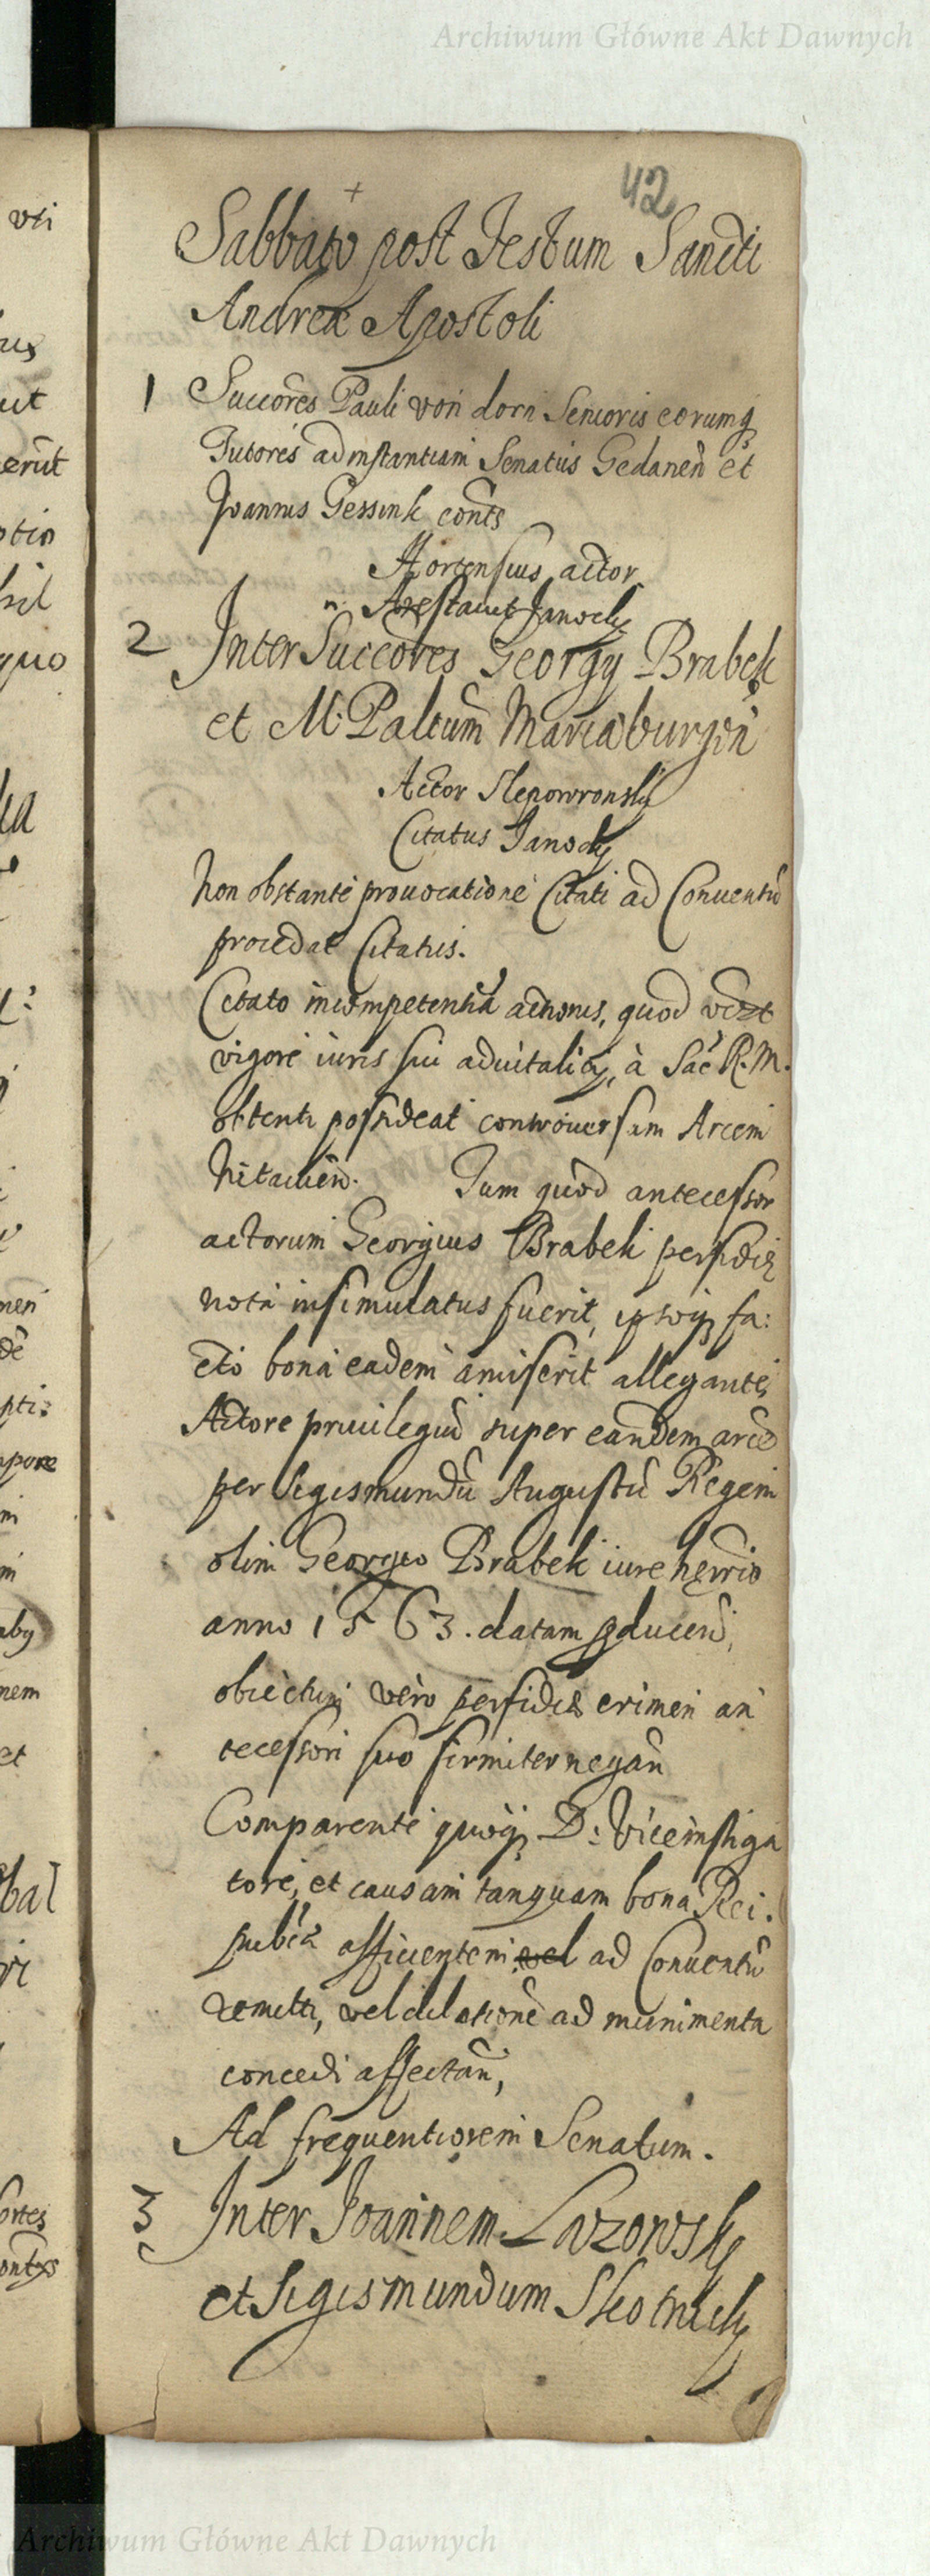 Archiwum Główne Akt Dawnych
42
Sabbato post Festum Sancti
Andreæ Apostoli
1 Succores Pauli von dorn Senioris eorumq
Tutores ad instantiam Senatus Gedanen et
Joannis Gessink conts
Hortensius actor
Janocky
2 Inter Succores Georgy Brabek
et M: Palatum Mariaeburgen
Actor Slepowronsky
Citatus Janocky
Non obstante prouocatione Citati ad Conuentu
procedat Citatus.
Citato incompetentia actionis, quod
vigore iuris sui aduitalicy, à Sac R. M.
obtenti possideat controuersam Arcem
Tum quod antecessor
actorum Georgius Brabek perfidiæ
nota insimulatus fuerit, ipsoq fa:
cto bona eadem amiserit allegante,
Actore priuilegiu super eandem arce
per Sigismundu Augustu Regem
olim Georgio Brabek iure
anno 1563. datam
obiectum vero perfidiæ crimen an
tecessori suo firmiter negan
Comparente quoq D: Viceinstiga
tore, et causam tanquam bona Rei.
pub afficientem vel ad Conuentu
remitti, vel dilatione ad munimenta
concedi affectan,
Ad frequentiorem Senatum.
3 Inter Joannem Lazowsky
et Sigismundum Skotnicky
Archiwum Główne Akt Dawnych